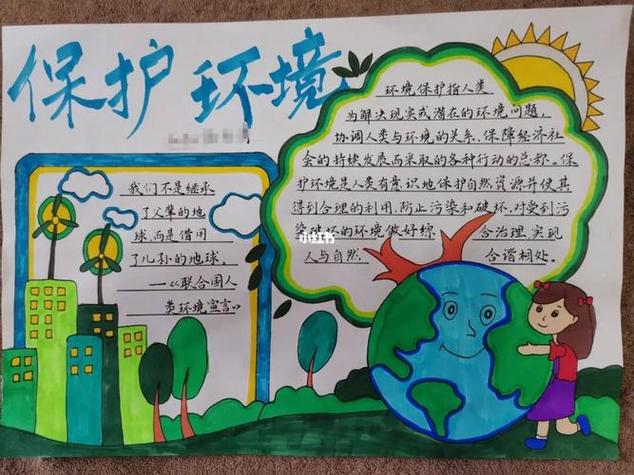 保护环境
环境保护指人类
为解决现实或潜在的环境问题，
协调人类与环境的关系，保障经济社
会的持续发展而采取的各种行动的总称。保
护环境是人类有意识地保护自然资源并使其
得到合理的利用，防止污染和破坏，对受到污
染破坏的环境做好综 合治理，实现
人与自然， 合谐相处。
我们不是继承
了父辈的地
球，而是借用
了儿孙的地球。
——《联合国人
类环境宣言》
小红书